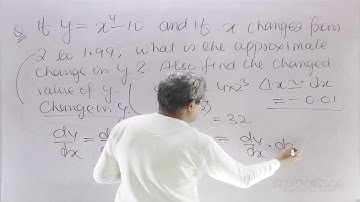 Q. If y = x⁴-10 and if x changes from
2 to 1.99, what is the approximate
change in y? Also find the changed
value of y.
Change in y 4x2³ Δx ≃ dx
= 32 = -0.01
dy/dx = = dy/dx · dx